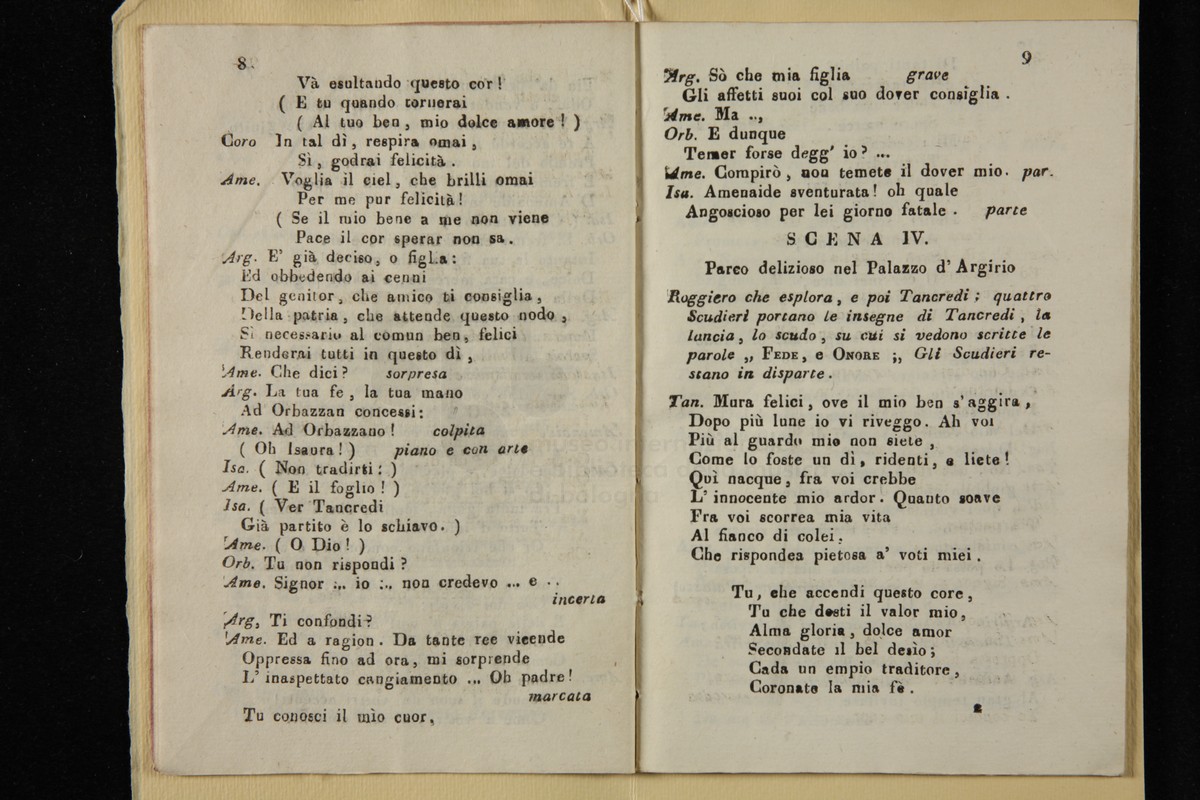 8.
Và esultando questo cor!
( E tu quando tornerai
( Al tuo ben, mio dolce amore! )
Coro In tal dì, respira omai,
Sì, godrai felicità.
Ame. Voglia il ciel, che brilli omai
Per me pur felicità!
( Se il mio bene a me non viene
Pace il cor sperar non sa.
Arg. E' già deciso, o figlia:
Ed obbedendo ai cenni
Del genitor, che amico ti consiglia,
Della patria, che attende questo nodo,
Sì necessario al comun ben, felici
Renderai tutti in questo dì,
Ame. Che dici? sorpresa
Arg. La tua fe, la tua mano
Ad Orbazzan concessi:
Ame. Ad Orbazzano! colpita
( Oh Isaura! ) piano e con arte
Isa. ( Non tradirti: )
Ame. ( E il foglio! )
Isa. ( Ver Tancredi
Già partito è lo schiavo. )
Ame. ( O Dio! )
Orb. Tu non rispondi?
Ame. Signor :.. io :.. non credevo ... e ..
incerta
Arg, Ti confondi?
Ame. Ed a ragion. Da tante ree vicende
Oppressa fino ad ora, mi sorprende
L' inaspettato cangiamento ... Oh padre!
marcata
Tu conosci il mìo cuor,
9
Arg. Sò che mia figlia grave
Gli affetti suoi col suo dover consiglia.
Ame. Ma ..,
Orb. E dunque
Temer forse degg' io? ...
Ame. Compirò, non temete il dover mio. par.
Isa. Amenaide sventurata! oh quale
Angoscioso per lei giorno fatale. parte
SCENA IV.
Parco delizioso nel Palazzo d' Argirio
Roggiero che esplora, e poi Tancredi; quattro
Scudieri portano le insegne di Tancredi, la
lancia, lo scudo, su cui si vedono scritte le
parole ,, FEDE, e ONORE ;, Gli Scudieri re-
stano in disparte.
Tan. Mura felici, ove il mio ben s' aggira,
Dopo più lune io vi riveggo. Ah voi
Più al guardo mio non siete,
Come lo foste un dì, ridenti, e liete!
Quì nacque, fra voi crebbe
L' innocente mio ardor. Quanto soave
Fra voi scorrea mia vita
Al fianco di colei,
Che rispondea pietosa a' voti miei.
Tu, che accendi questo core,
Tu che desti il valor mio,
Alma gloria, dolce amor
Secondate il bel desìo;
Cada un empio traditore,
Coronate la mia fè.
2